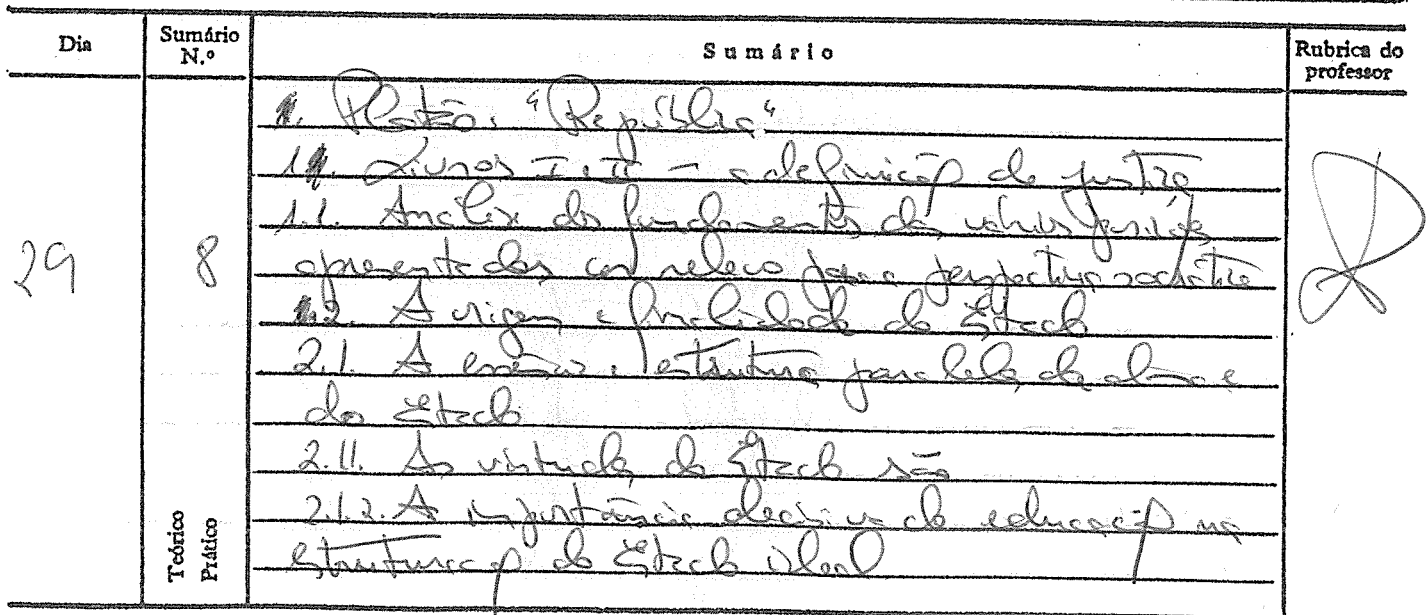 Dia
Sumário N.º
Sumário
Rubrica do professor
29
8
Teórico
Prático
1. Platão: "República"
1. Livros I e II - a definição de justiça
1.1. Análise dos fundamentos das várias posições
apresentadas com relevo para a perspectiva socrática
2. A origem e finalidade do Estado
2.1. A essência e estrutura paralela da alma e
do Estado
2.1.1. As virtudes do Estado são
2.1.2. A importância decisiva da educação na
estruturação do Estado ideal